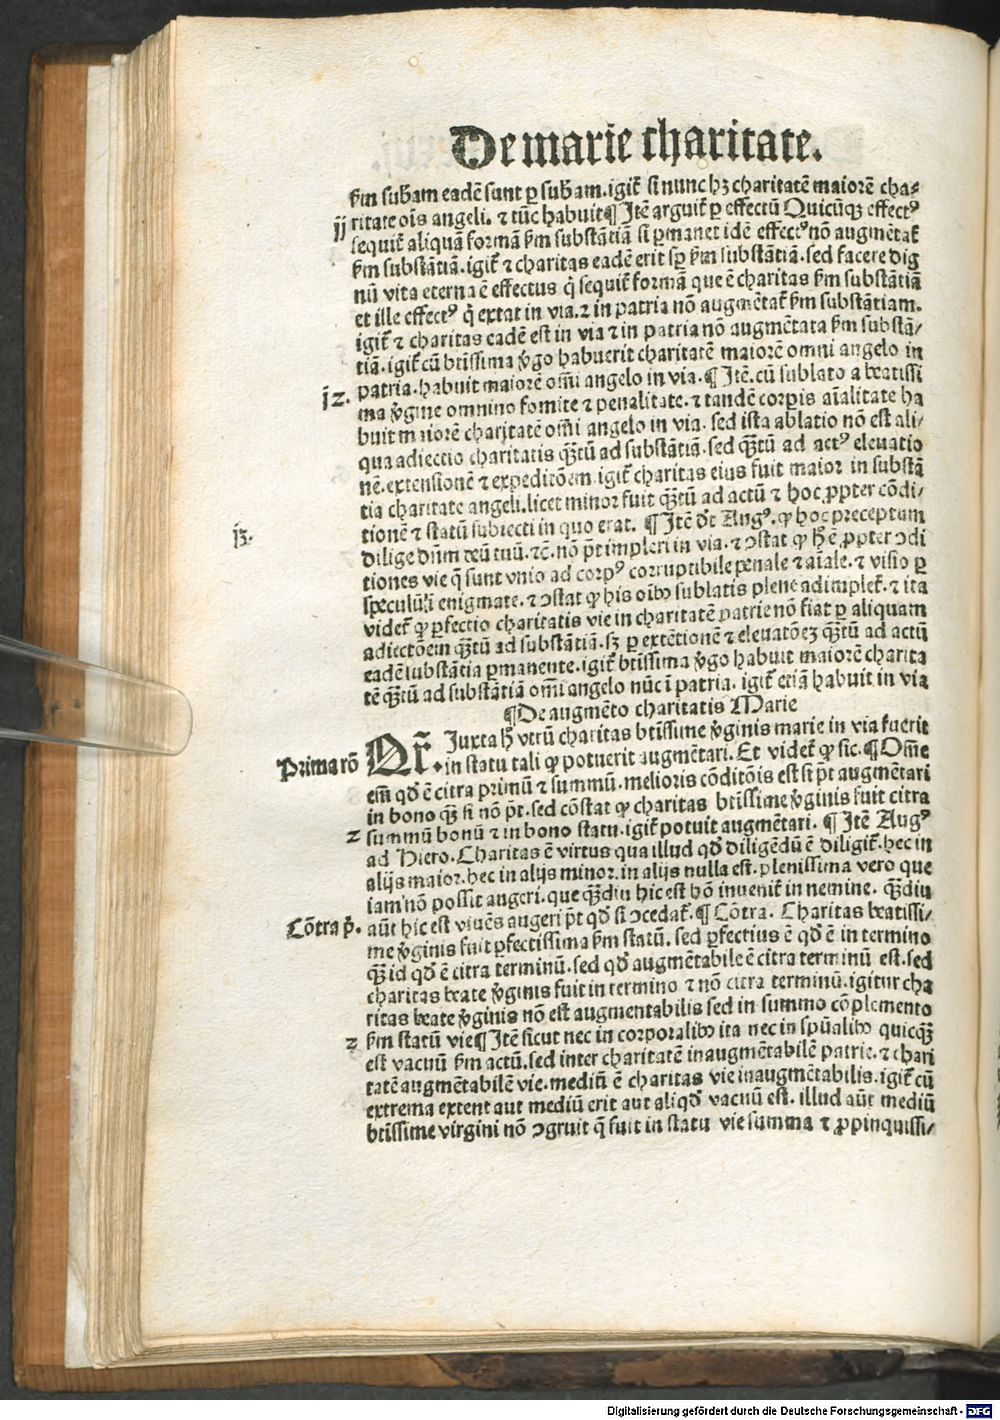 De marie charitate.
ẜm suƀam eadē sunt ꝑ suƀam. igit̄ si nunc hꝫ charitatē maiorē cha⸗
ij ritate oīs angeli. ⁊ tūc habuit ¶ Itē arguit̄ ꝑ effectū Quicūqꝫ effectꝰ
sequit̄ aliquā formā ẜm substātiā si ꝑmanet idē effectꝰ nō augmētat̄
ẜm substātiā. igit̄ ⁊ charitas eadē erit sꝑ ẜm substātiā. sed facere dig
nū vita eterna ē effectus q̇ sequit̄ formā que ē charitas ẜm substātiā
et ille effectꝰ q̇ extat in via. ⁊ in patria nō augmētat̄ ẜm substātiam.
igit̄ ⁊ charitas eadē est in via ⁊ in patria nō augmētata ẜm substā/
tiā. igit̄ cū btīssima ꝟgo habuerit charitatē maiorē omni angelo in
patria. habuit maiorē om̄i angelo in via. ¶ Itē. cū sublato a beatissi
iz. ma ꝟgine omnino fomite ⁊ penalitate. ⁊ tandē corꝑis aīalitate ha
buit maiorē charitatē om̄i angelo in via. sed ista ablatio nō est ali/
qua adiectio charitatis qꝫ̄tū ad substātiā. sed qꝫ̄tū ad actꝰ eleuatio
nē. extensionē ⁊ expeditōem. igit̄ charitas eius fuit maior in substā
tia charitate angeli. licet minor fuit qꝫ̄tū ad actū ⁊ hoc ꝓpter cōdi/
tionē ⁊ statū subiecti in quo erat. ¶ Itē dc̄t Augꝰ. ꝙ hoc preceptum
iꝫ. dilige dn̄m deū tuū. ⁊c̄. nō pt̄ impleri in via. ⁊ ɔstat ꝙ h̄ ē ꝓpter ɔdi
tiones vie q̄ sunt vnio ad corpꝰ corruptibile penale ⁊ aīale. ⁊ visio ꝑ
speculū ī enigmate. ⁊ ɔstat ꝙ his oībꝰ sublatis plene adimplet̄. ⁊ ita
videt̄ ꝙ ꝑfectio charitatis vie in charitatē patrie nō fiat ꝑ aliquam
adiectōem qꝫ̄tū ad substātiā. sꝫ ꝑ extētionē ⁊ eleuatōeꝫ qꝫ̄tū ad actū
eadē substātia ꝑmanente. igit̄ btīssima ꝟgo habuit maiorē charita
tē qꝫ̄tū ad substātiā om̄i angelo nūc ī patria. igit̄ etiā habuit in via
¶ De augmēto charitatis Marie
Qr̄. Iuxta h̄ vtrū charitas btīssime ꝟginis marie in via fuerit
Prima rō in statu tali ꝙ potuerit augmētari. Et videt̄ ꝙ sic. ¶ Om̄e
em̄ qd̄ ē citra primū ⁊ summū. melioris cōditōis est si pt̄ augmētari
in bono qꝫ̄ si nō pt̄. sed cōstat ꝙ charitas btīssime ꝟginis fuit citra
z summū bonū ⁊ in bono statu. igit̄ potuit augmētari. ¶ Itē Augꝰ
ad Hiero. Charitas ē virtus qua illud qd̄ diligēdū ē diligit̄. hec in
alijs maior. hec in alijs minor. in alijs nulla est. plenissima vero que
iam nō possit augeri. que qꝫ̄diu hic est hō inuenit̄ in nemine. qꝫ̄diu
Cōtra p̄. aūt hic est viuēs augeri pt̄ qd̄ si ɔcedat̄. ¶ Cōtra. Charitas beatissi/
me ꝟginis fuit ꝑfectissima ẜm statū. sed ꝑfectius ē qd̄ ē in termino
qꝫ̄ id qd̄ ē citra terminū. sed qd̄ augmētabile ē citra terminū est. sed
charitas beate ꝟginis fuit in termino ⁊ nō citra terminū. igitur cha
ritas beate ꝟginis nō est augmentabilis sed in summo cōplemento
z ẜm statū vie ¶ Itē sicut nec in corporalibꝰ ita nec in spūalibꝰ quicqꝫ̄
est vacuū ẜm actū. sed inter charitatē inaugmētabilē patrie. ⁊ chari
tatē augmētabilē vie. mediū ē charitas vie inaugmētabilis. igit̄ cū
extrema extent aut mediū erit aut aliqd̄ vacuū est. illud aūt mediū
btīssime virgini nō ɔgruit q̄ fuit in statu vie summa ⁊ ꝓpinquissi/
Digitalisierung gefördert durch die Deutsche Forschungsgemeinschaft - DFG